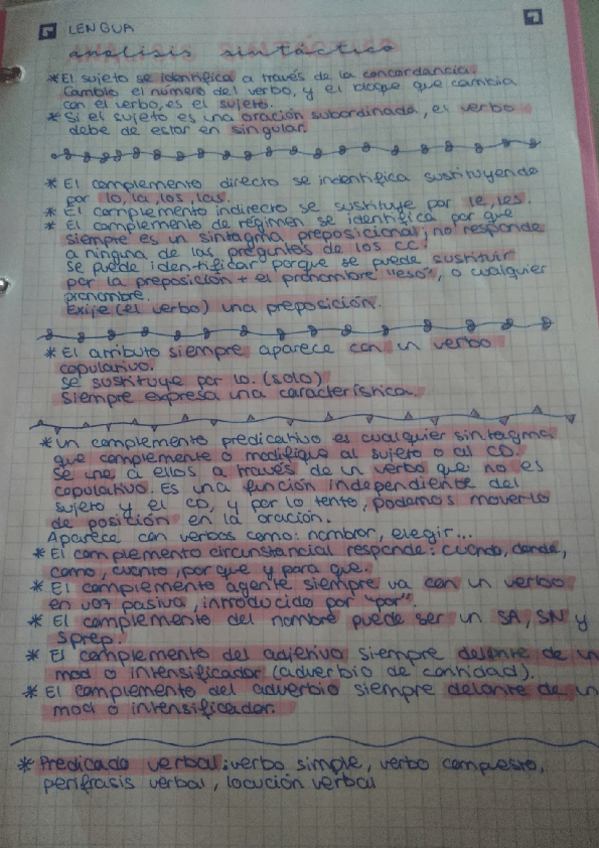 LENGUA
análisis sintáctico
* El sujeto se identifica a través de la concordancia.
Cambio el número del verbo, y el bloque que cambia
con el verbo, es el sujeto.
* Si el sujeto es una oración subordinada, el verbo
debe de estar en singular.
* El complemento directo se indentifica sustituyendo
por lo, la, los, las.
* El complemento indirecto se sustituye por le, les.
* El complemento de régimen se identifica por que
siempre es un sintagma preposicional; no responde
a ninguna de las preguntas de los CC.
Se puede identificar porque se puede sustituir
por la preposición + el pronombre "eso", o cualquier
pronombre.
Exije (el verbo) una preposición.
* El atributo siempre aparece con un verbo
copulativo.
Se sustituye por lo. (solo)
Siempre expresa una característica.
* Un complemento predicativo es cualquier sintagma
que complemente o modifique al sujeto o al CD.
Se une a ellos a través de un verbo que no es
copulativo. Es una función independiente del
sujeto y el CD, y por lo tento, podemos moverlo
de posición en la oración.
Aparece con verbos como: nombrar, elegir...
* El complemento circunstancial responde: cuándo, donde,
como, cuanto, por que y para que.
* El complemento agente siempre va con un verbo
en voz pasiva, introducido por "por".
* El complemento del nombre puede ser un SA, SN y
Sprep.
* El complemento del adjetivo siempre delante de un
mod o intensificador (adverbio de cantidad).
* El complemento del adverbio siempre delante de un
mod o intensificador.
* Predicado verbal: verbo simple, verbo compuesto,
perífrasis verbal, locución verbal